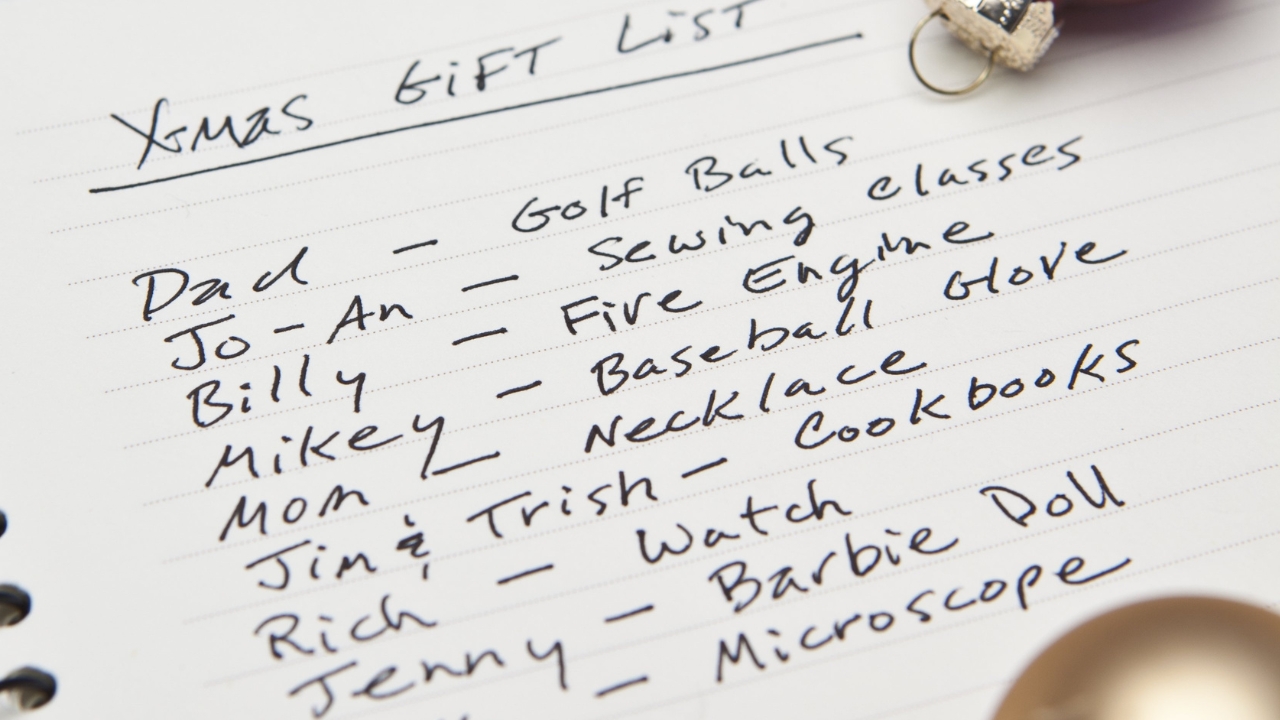 Xmas GiFT LiST
Dad - Golf Balls
Jo-An - Sewing classes
Billy - Fire Engine
Mikey - Baseball Glove
Mom - Necklace
Jim & Trish - Cookbooks
Rich - Watch
Jenny - Barbie Doll
- Microscope